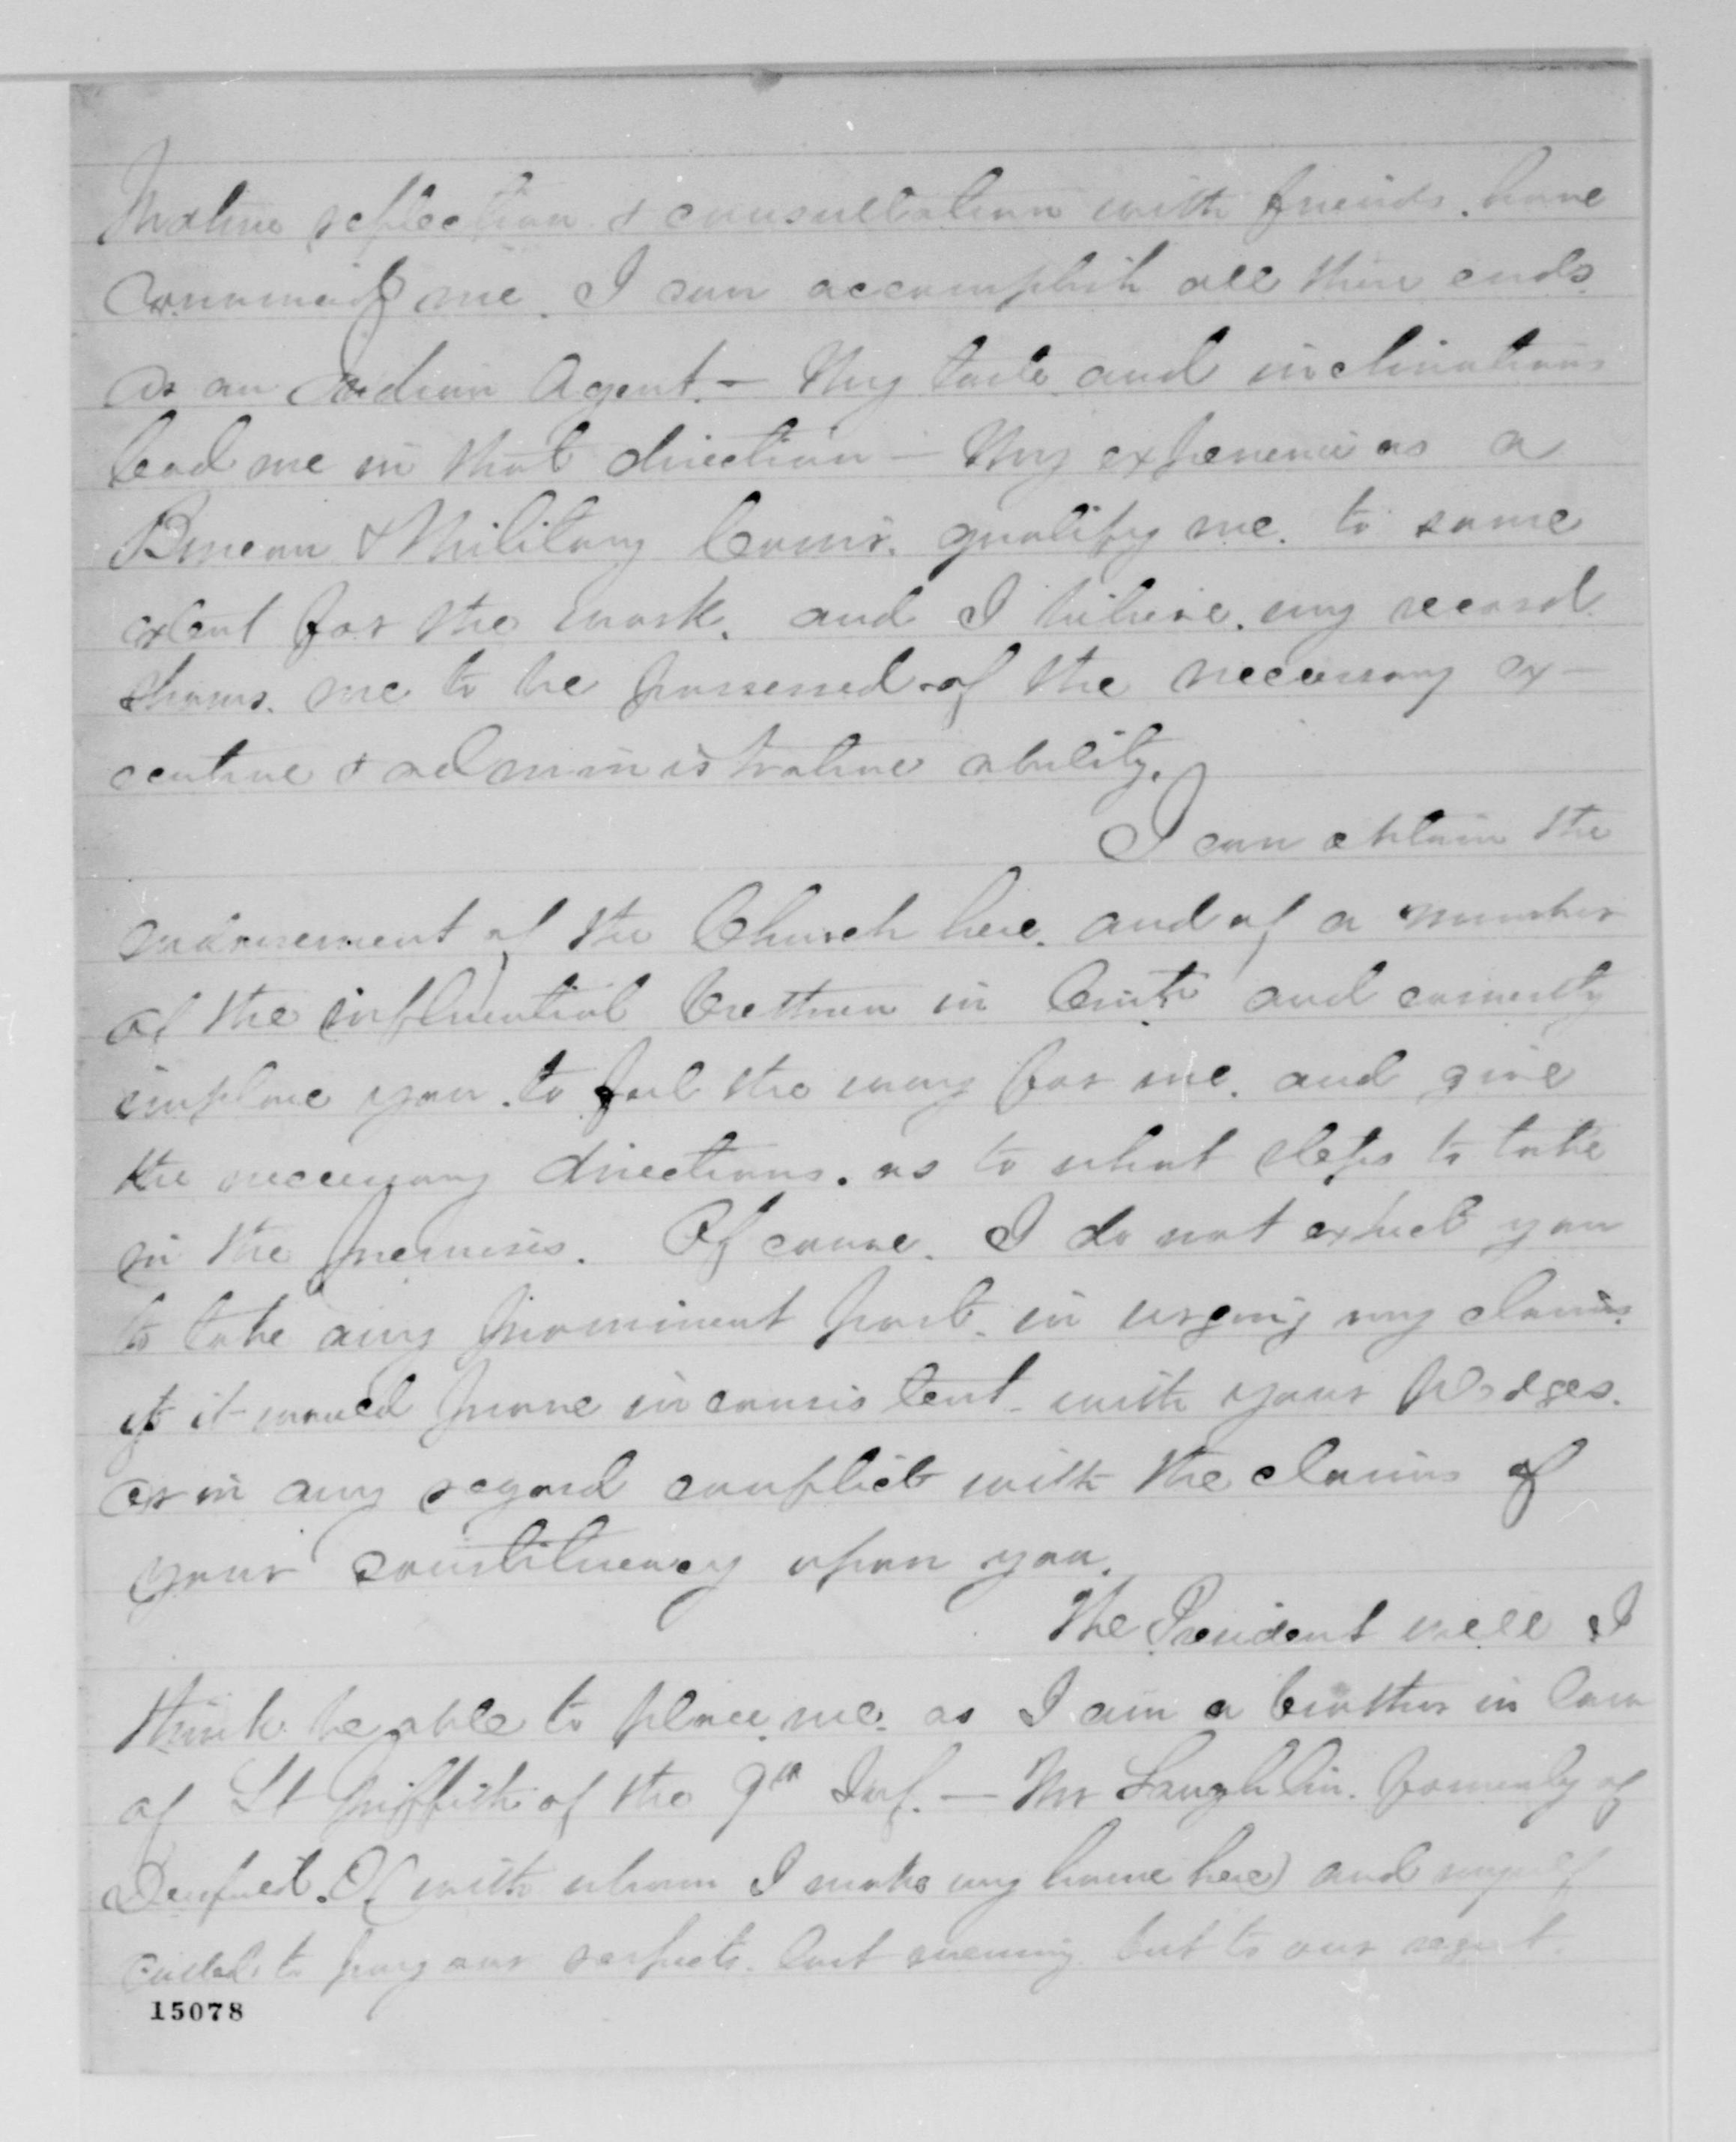 Mature reflection & consultation with friends. have
convinced me. I can accomplish all these ends.
as an Indian Agent. – My taste and inclinations
lead me in that direction – My experience as a
Bureau & Military Comr. qualify me. to some
extent for the work. and I believe. my record.
shows. me to be possessed of the necessary ex-
ecutive & administrative ability.
I can obtain the
endorsement of the Church here. and of a number
of the influential brethren in Cinti. and earnestly
implore you. to feel the way for me. and give
the necessary directions. as to what steps to take
in the premises. Of course. I do not expect you
to take any prominent part. in urging my claims.
if it would prove inconsistent with your pledges.
or in any regard conflict with the claims of
your constituency upon you.
The President will I
think be able to place me. as I am a brother in law
of Lt Griffith of the 9th Inf. – Mr Laughlin. formerly of
O (with whom I make my home here) and myself
called to pay our respects. last evening. but to our regret.
15078